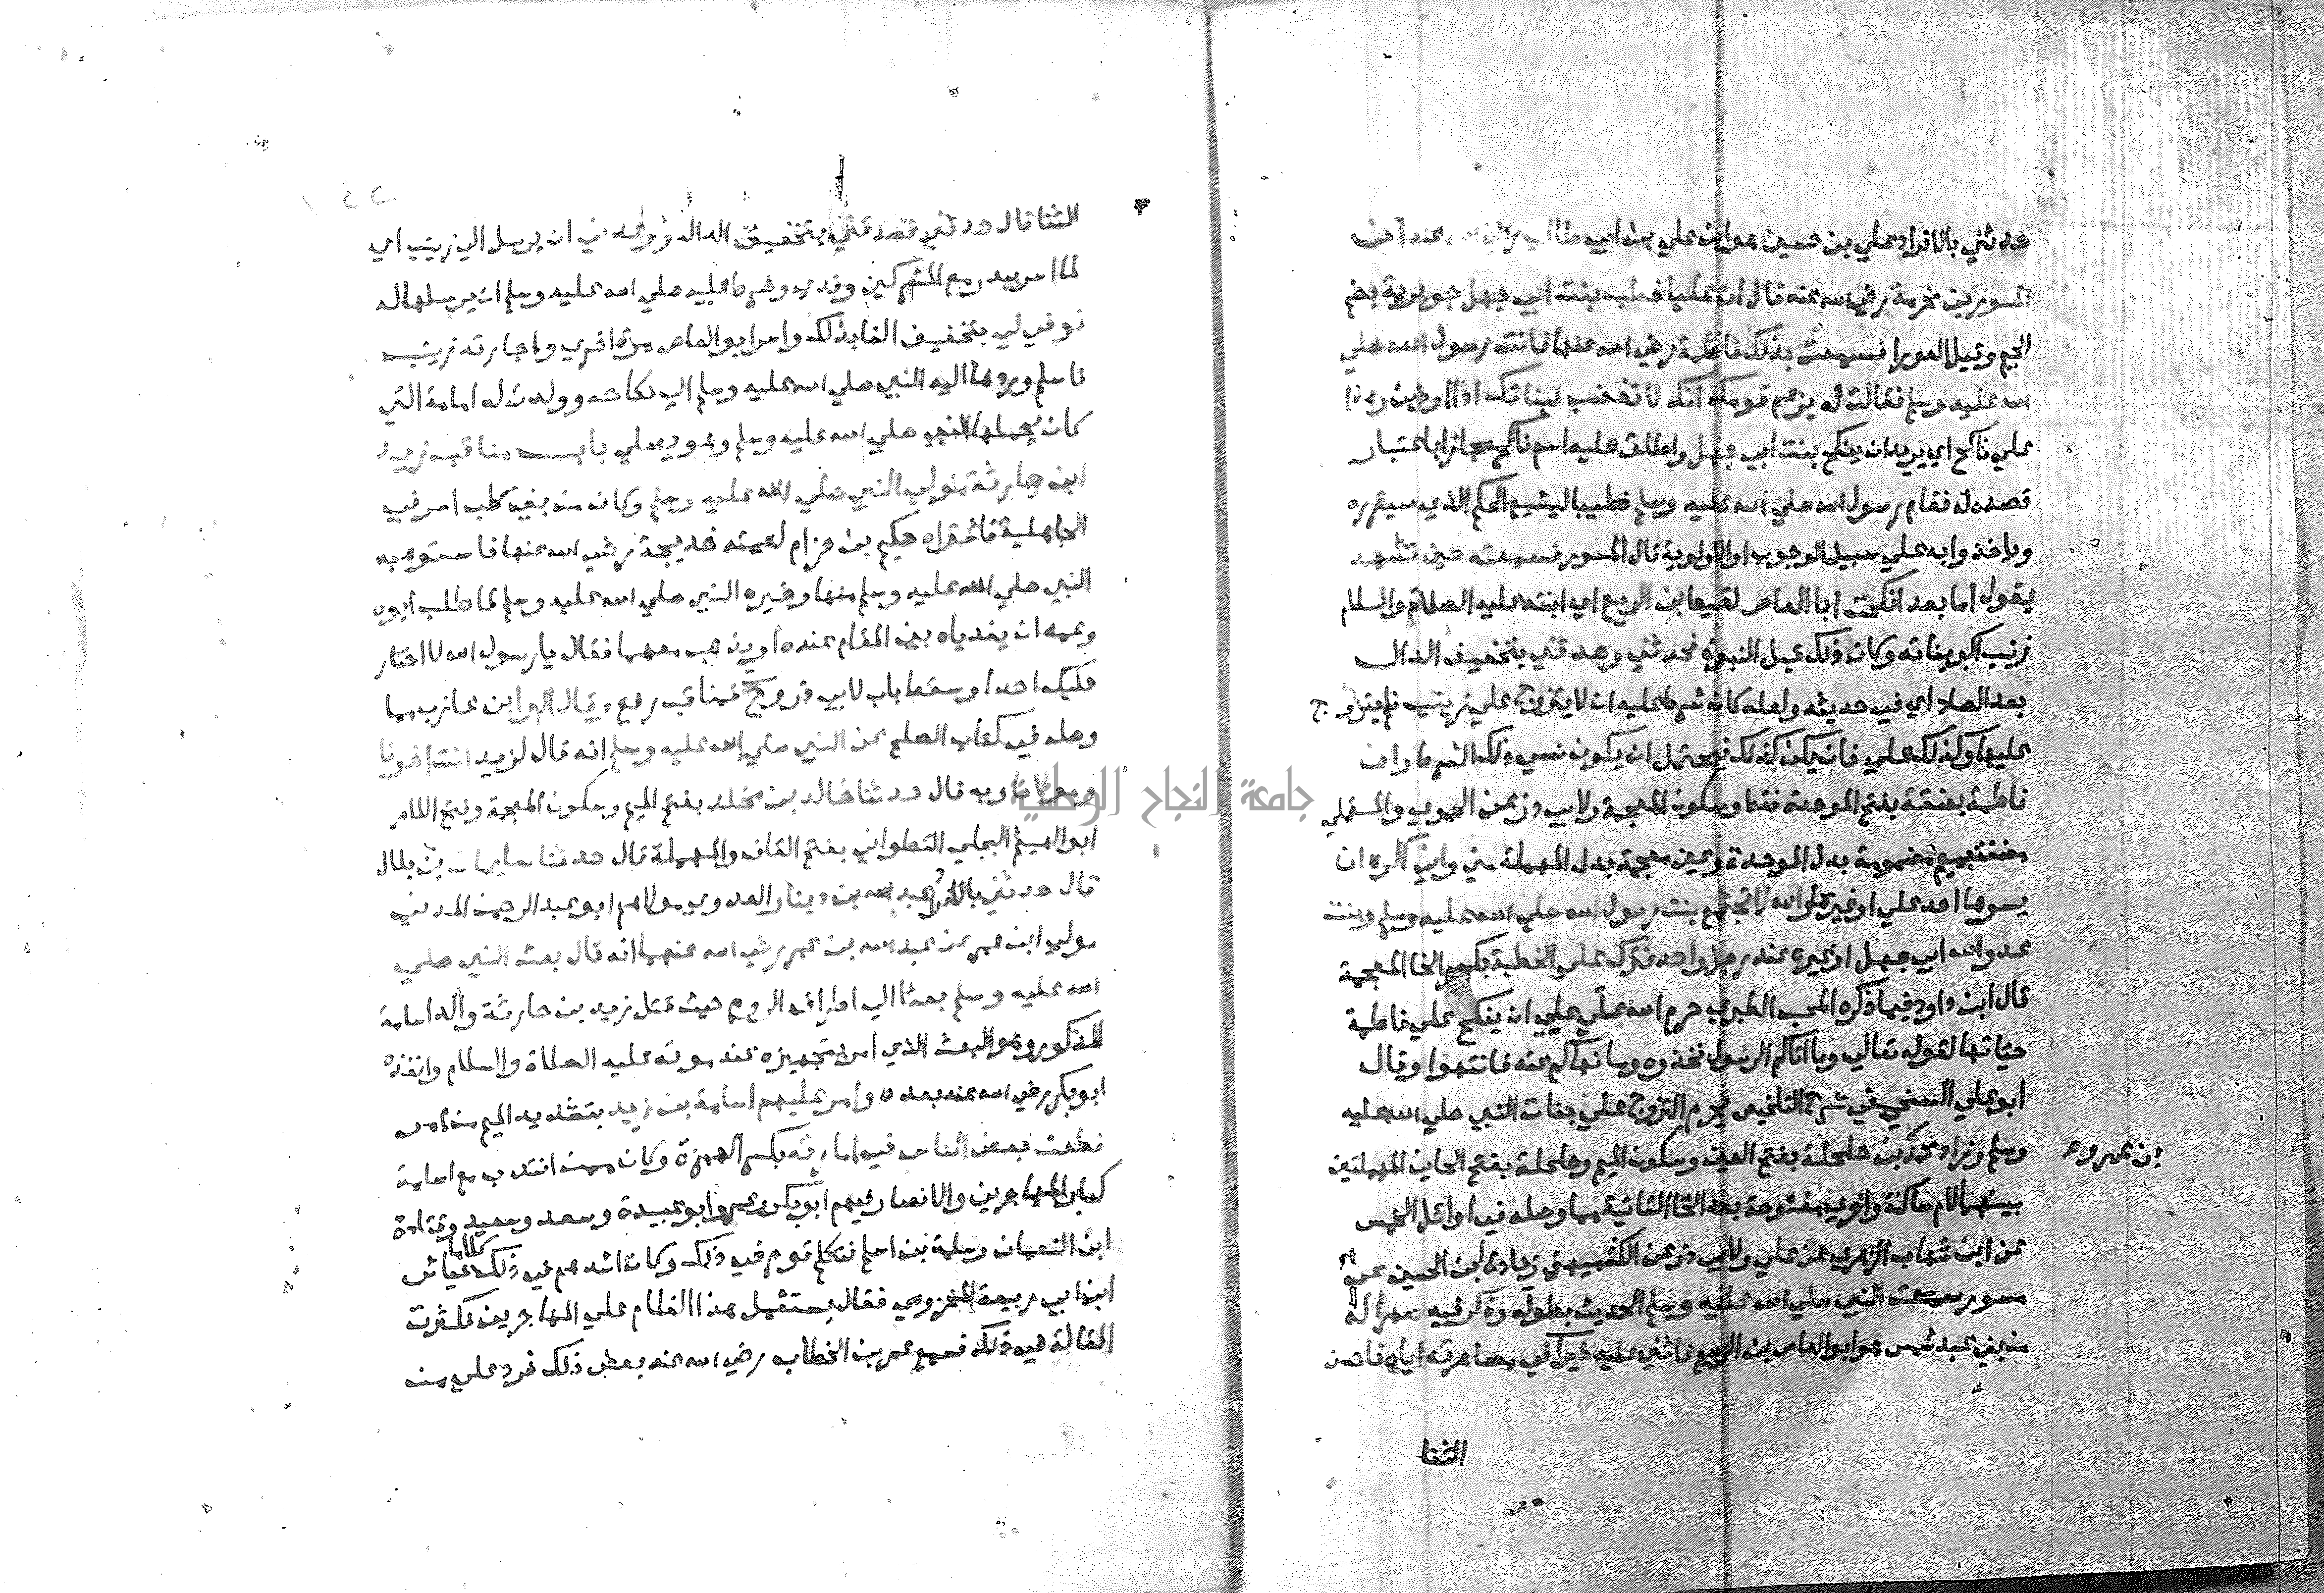 حدثني بالافراد علي بن حسين هو ابن علي بن ابي طالب رضي الله عنه ان
المسور بن مخرمة رضي الله عنه قال ان عليا خطب بنت ابي جهل جويرية بضم
الجيم وقيل العورا فسمعت بذلك فاطمة رضي الله عنها فاتت رسول الله صلي
الله عليه وسلم فقالت له يزعم قومك انك لا تغضب لبناتك اذا اوذين وهذا
علي ناكح اي يريد ان ينكح بنت ابي جهل واطلق عليه اسم ناكح مجازا باعتبار
قصده له فقام رسول الله صلي الله عليه وسلم خطيبا ليشيع الحكم الذي سيقرره
وياخذوا به علي سبيل الوجوب او الاولوية قال المسور فسمعته حين تشهد
يقول اما بعد انكحت ابا العاص لقيط بن الربيع اي ابنته عليه الصلاة والسلام
زينب اكبر بناته وكان ذلك قبل النبوة فحدثني وصدقني بتخفيف الدال
بعد الصاد اي في حديثه ولعله كان شرط عليه ان لا يتزوج علي زينب فلم يتزوج
عليها وكذلك علي فان يكن كذلك فيحتمل ان يكون نسي ذلك الشرط وان
فاطمة بضعة بفتح الموحدة فقط وسكون المعجمة ولابي ذر عن الحموي والمستملي
مضغة بميم مضمومة بدل الموحدة وغين معجمة بدل المهملة مني واني اكره ان
يسوها احد علي او غيره والله لا تجتمع بنت رسول الله صلي الله عليه وسلم وبنت
عدو الله ابي جهل او غيره عند رجل واحد فترك علي الخطبة بكسر الخا المعجمة
قال ابن داود فيما ذكره المحب الطبري حرم الله علي علي ان ينكح علي فاطمة
حياتها لقوله تعالي وما اتاكم الرسول فخذوه وما نهاكم عنه فانتهوا وقال
ابو علي السنجي في شرح التلخيص يحرم التزوج علي بنات النبي صلي الله عليه
وسلم وزاد محمد بن حلحلة بفتح العين وسكون الميم وحلحلة بفتح الحاين المهملتين
بن عمرو
بينهما لام ساكنة واخري مفتوحة بعد الحا الثانية مما وصله في اوائل الخمس
عن ابن شهاب الزهري عن علي ولابي ذر عن الكشميهني زيادة ابن الحسين عن
مسور سمعت النبي صلي الله عليه وسلم الحديث بطوله وذكر فيه صهرا له
من بني عبد شمس هو ابو العاص بن الربيع فاثني عليه خيرا في مصاهرته اياه فاحسن
الثنا
الثنا قال حدثني فصدقني بتخفيف الدال ووعدني ان يرسل الي زينب اي
لما اسر ببدر مع المشركين وفدي وشرط عليه صلي الله عليه وسلم ان يرسلها له
فوفي لي بتخفيف الفا بذلك واسر ابو العاص مرة اخري واجارته زينب
فاسلم وردها اليه النبي صلي الله عليه وسلم الي نكاحه وولدت له امامة التي
كان يحملها النبي صلي الله عليه وسلم وهو يصلي باب مناقب زيد
ابن حارثة مولي النبي صلي الله عليه وسلم وكان من بني كلب اسر في
الجاهلية فاشتراه حكيم بن حزام لعمته خديجة رضي الله عنها فاستوهبه
النبي صلي الله عليه وسلم منها وخيره النبي صلي الله عليه وسلم لما طلب ابوه
وعمه ان يفدياه بين المقام عنده او يذهب معهما فقال يا رسول الله لا اختار
عليك احدا وسقط باب لابي ذر فمناقب رفع وقال البرا بن عازب مما
وصله في كتاب الصلح عن النبي صلي الله عليه وسلم انه قال لزيد انت اخونا
ومولانا وبه قال حدثنا خالد بن مخلد بفتح الميم وسكون المعجمة وفتح اللام
ابو الهيثم البجلي القطواني بفتح القاف والمهملة قال حدثنا سليمان بن بلال
قال حدثني بالافراد عبد الله بن دينار العدوي مولاهم ابو عبد الرحمن المدني
مولي ابن عمر عن عبد الله بن عمر رضي الله عنهما انه قال بعث النبي صلي
الله عليه وسلم بعثا الي اطراف الروم حيث قتل زيد بن حارثة والد اسامة
المذكور وهو البعث الذي امر بتجهيزه عند موته عليه الصلاة والسلام وانفذه
ابو بكر رضي الله عنه بعده وامر عليهم اسامة بن زيد بتشديد الميم من امر
فطعن بعض الناس في امارته بكسر الهمزة وكان ممن انتدب مع اسامة
كبار المهاجرين والانصار فيهم ابو بكر وعمر وابو عبيدة وسعد وسعيد وقتادة
ابن النعمان وسلمة بن اسلم فتكلم قوم في ذلك وكان اشدهم في ذلك كلاما عياش
ابن ابي ربيعة المخزومي فقال يستعمل هذا الغلام علي المهاجرين فكثرت
القالة في ذلك فسمع عمر بن الخطاب رضي الله عنه بعض ذلك فرد علي من
جامعة النجاح الوطنية